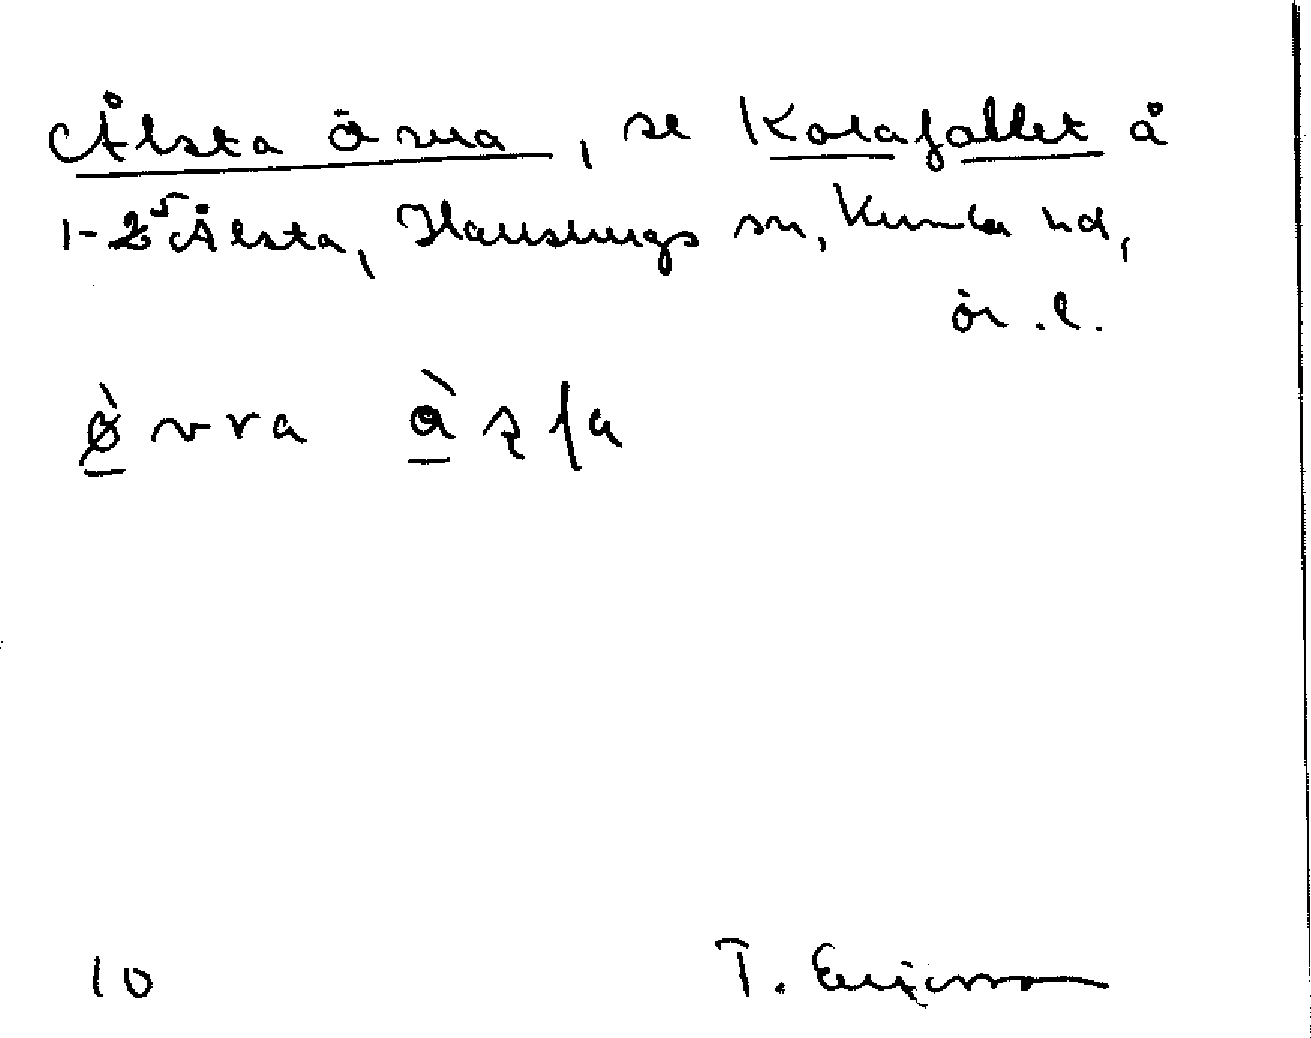 Ålsta övra, se Kolafallet å
1-2⁵ Ålsta, Hallsbergs sn, Kumla hd,
ör.l.
10
T. Ericsson